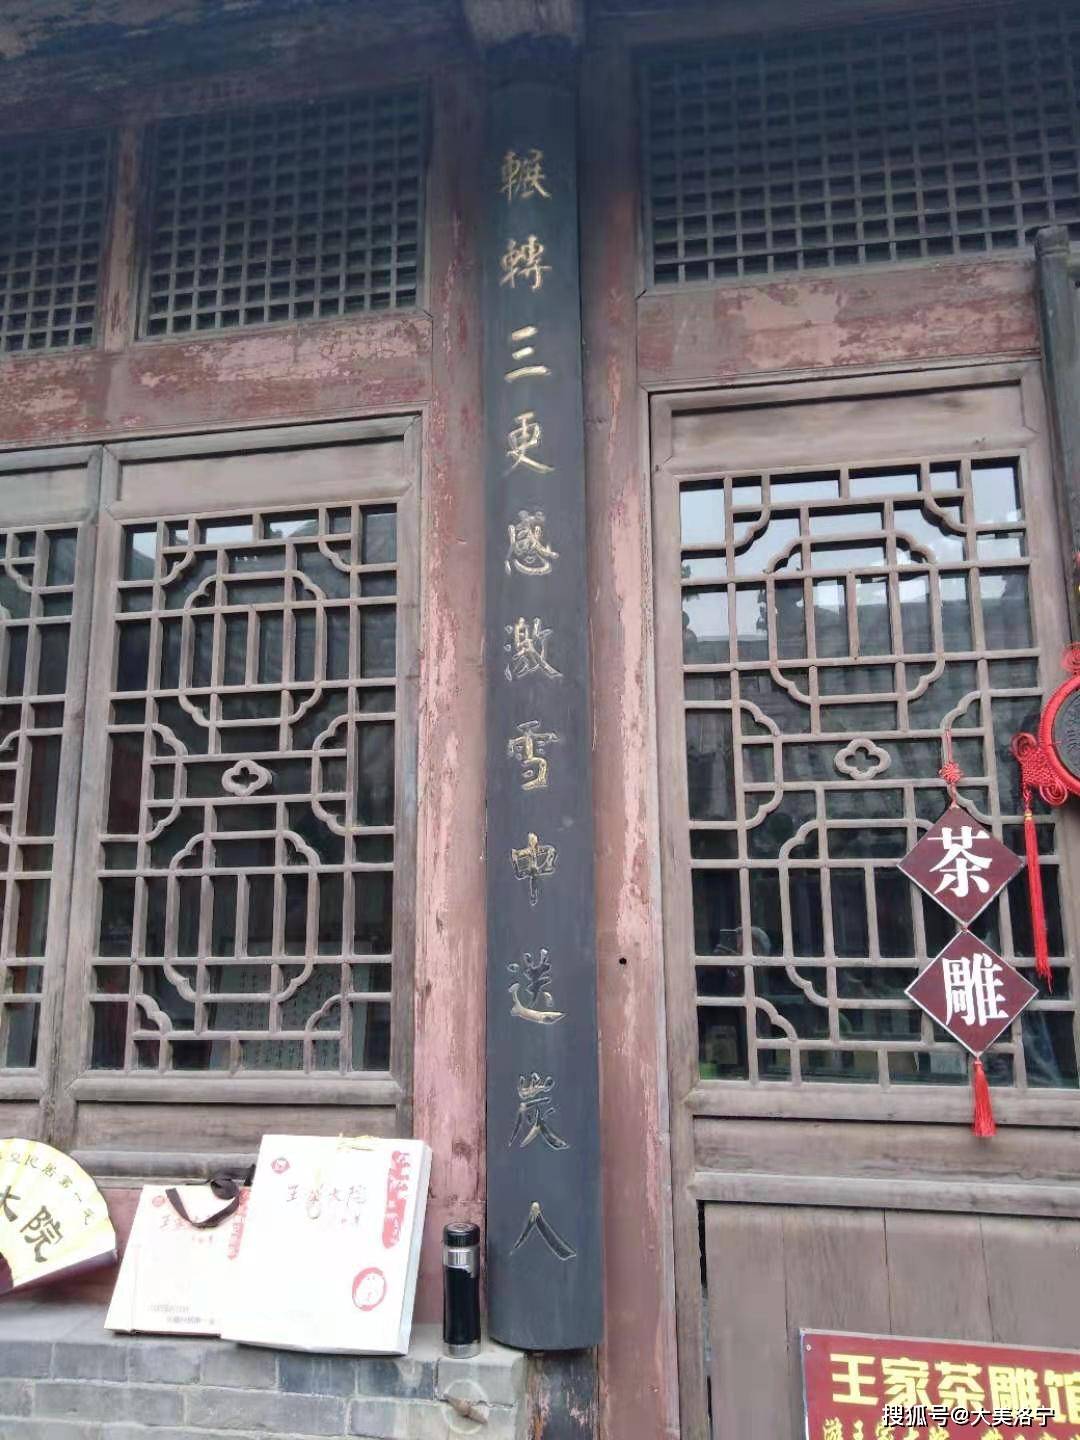 輾轉三更感激雪中送炭人
茶
雕
大院
王家大院
王家茶雕馆
游王家大院
搜狐号@大美洛宁